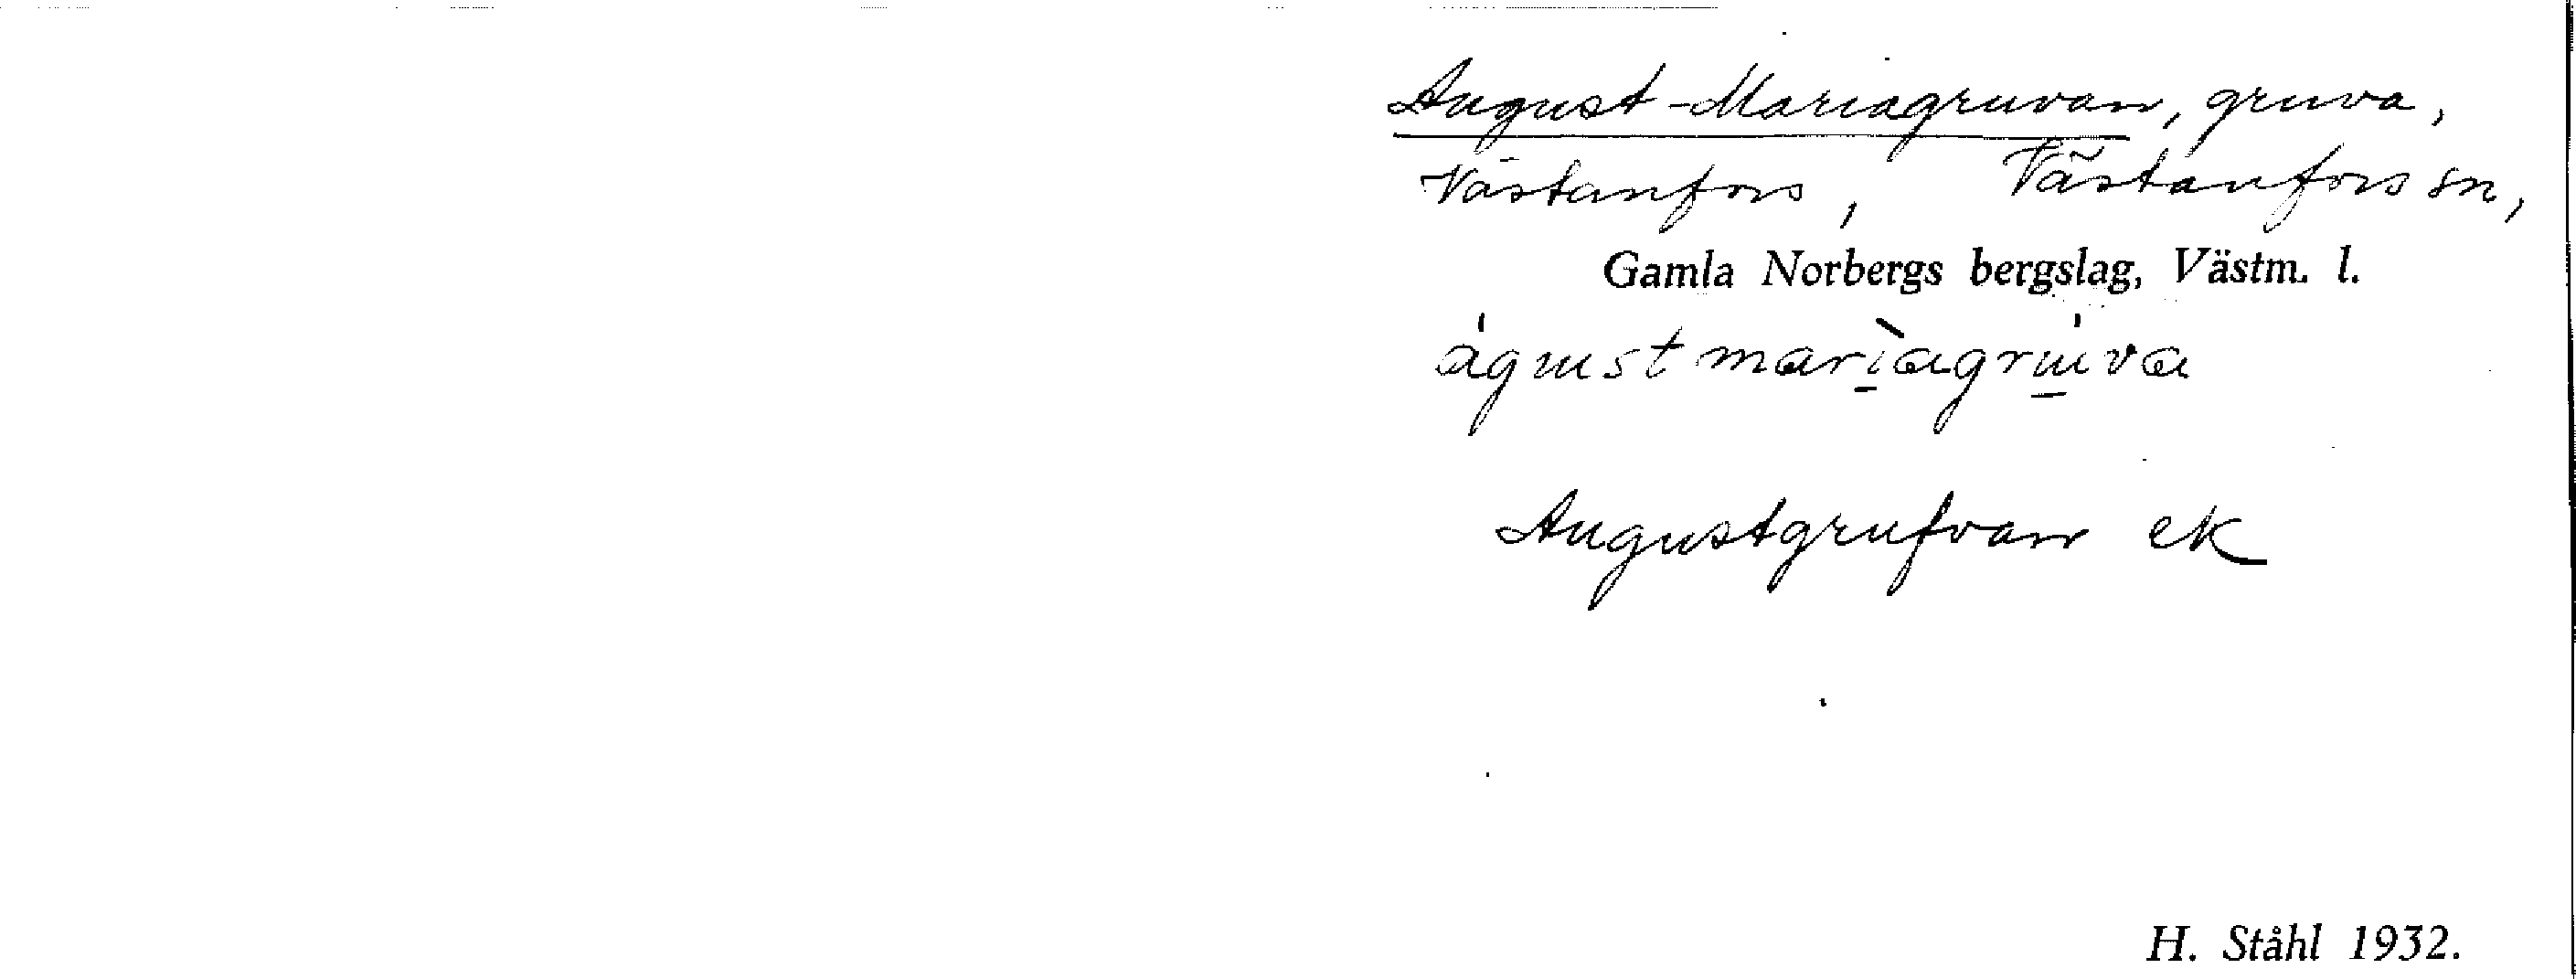 August-Mariagruvan, gruva,
Västanfors, Västanfors sn,
Gamla Norbergs bergslag, Västm. l.
águstmarìagrúva
Augustgrufvan ek
H. Ståhl 1932.